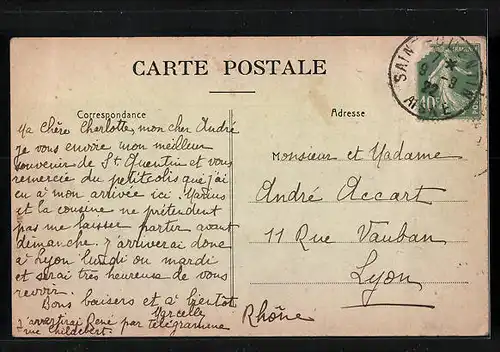 CARTE POSTALE
Correspondance
Adresse
Ma Chère Charlotte, mon cher André
Je vous envoie mon meilleur
souvenir de St Quentin et vous
remercie du petit colis que j'ai
eu à mon arrivée ici. Marius
et la cousine ne prétendent
pas me laisser partir avant
dimanche. J'arriverai donc
à Lyon lundi ou mardi
et serai très heureuse de vous
revoir.
Bons baisers et à bientôt
Marcelle
J'avertirai René par télégramme
rue Childebert.
Monsieur et Madame
André Accart
11 Rue Vauban
Lyon
Rhône
SAINT QUENTIN
AISNE
10